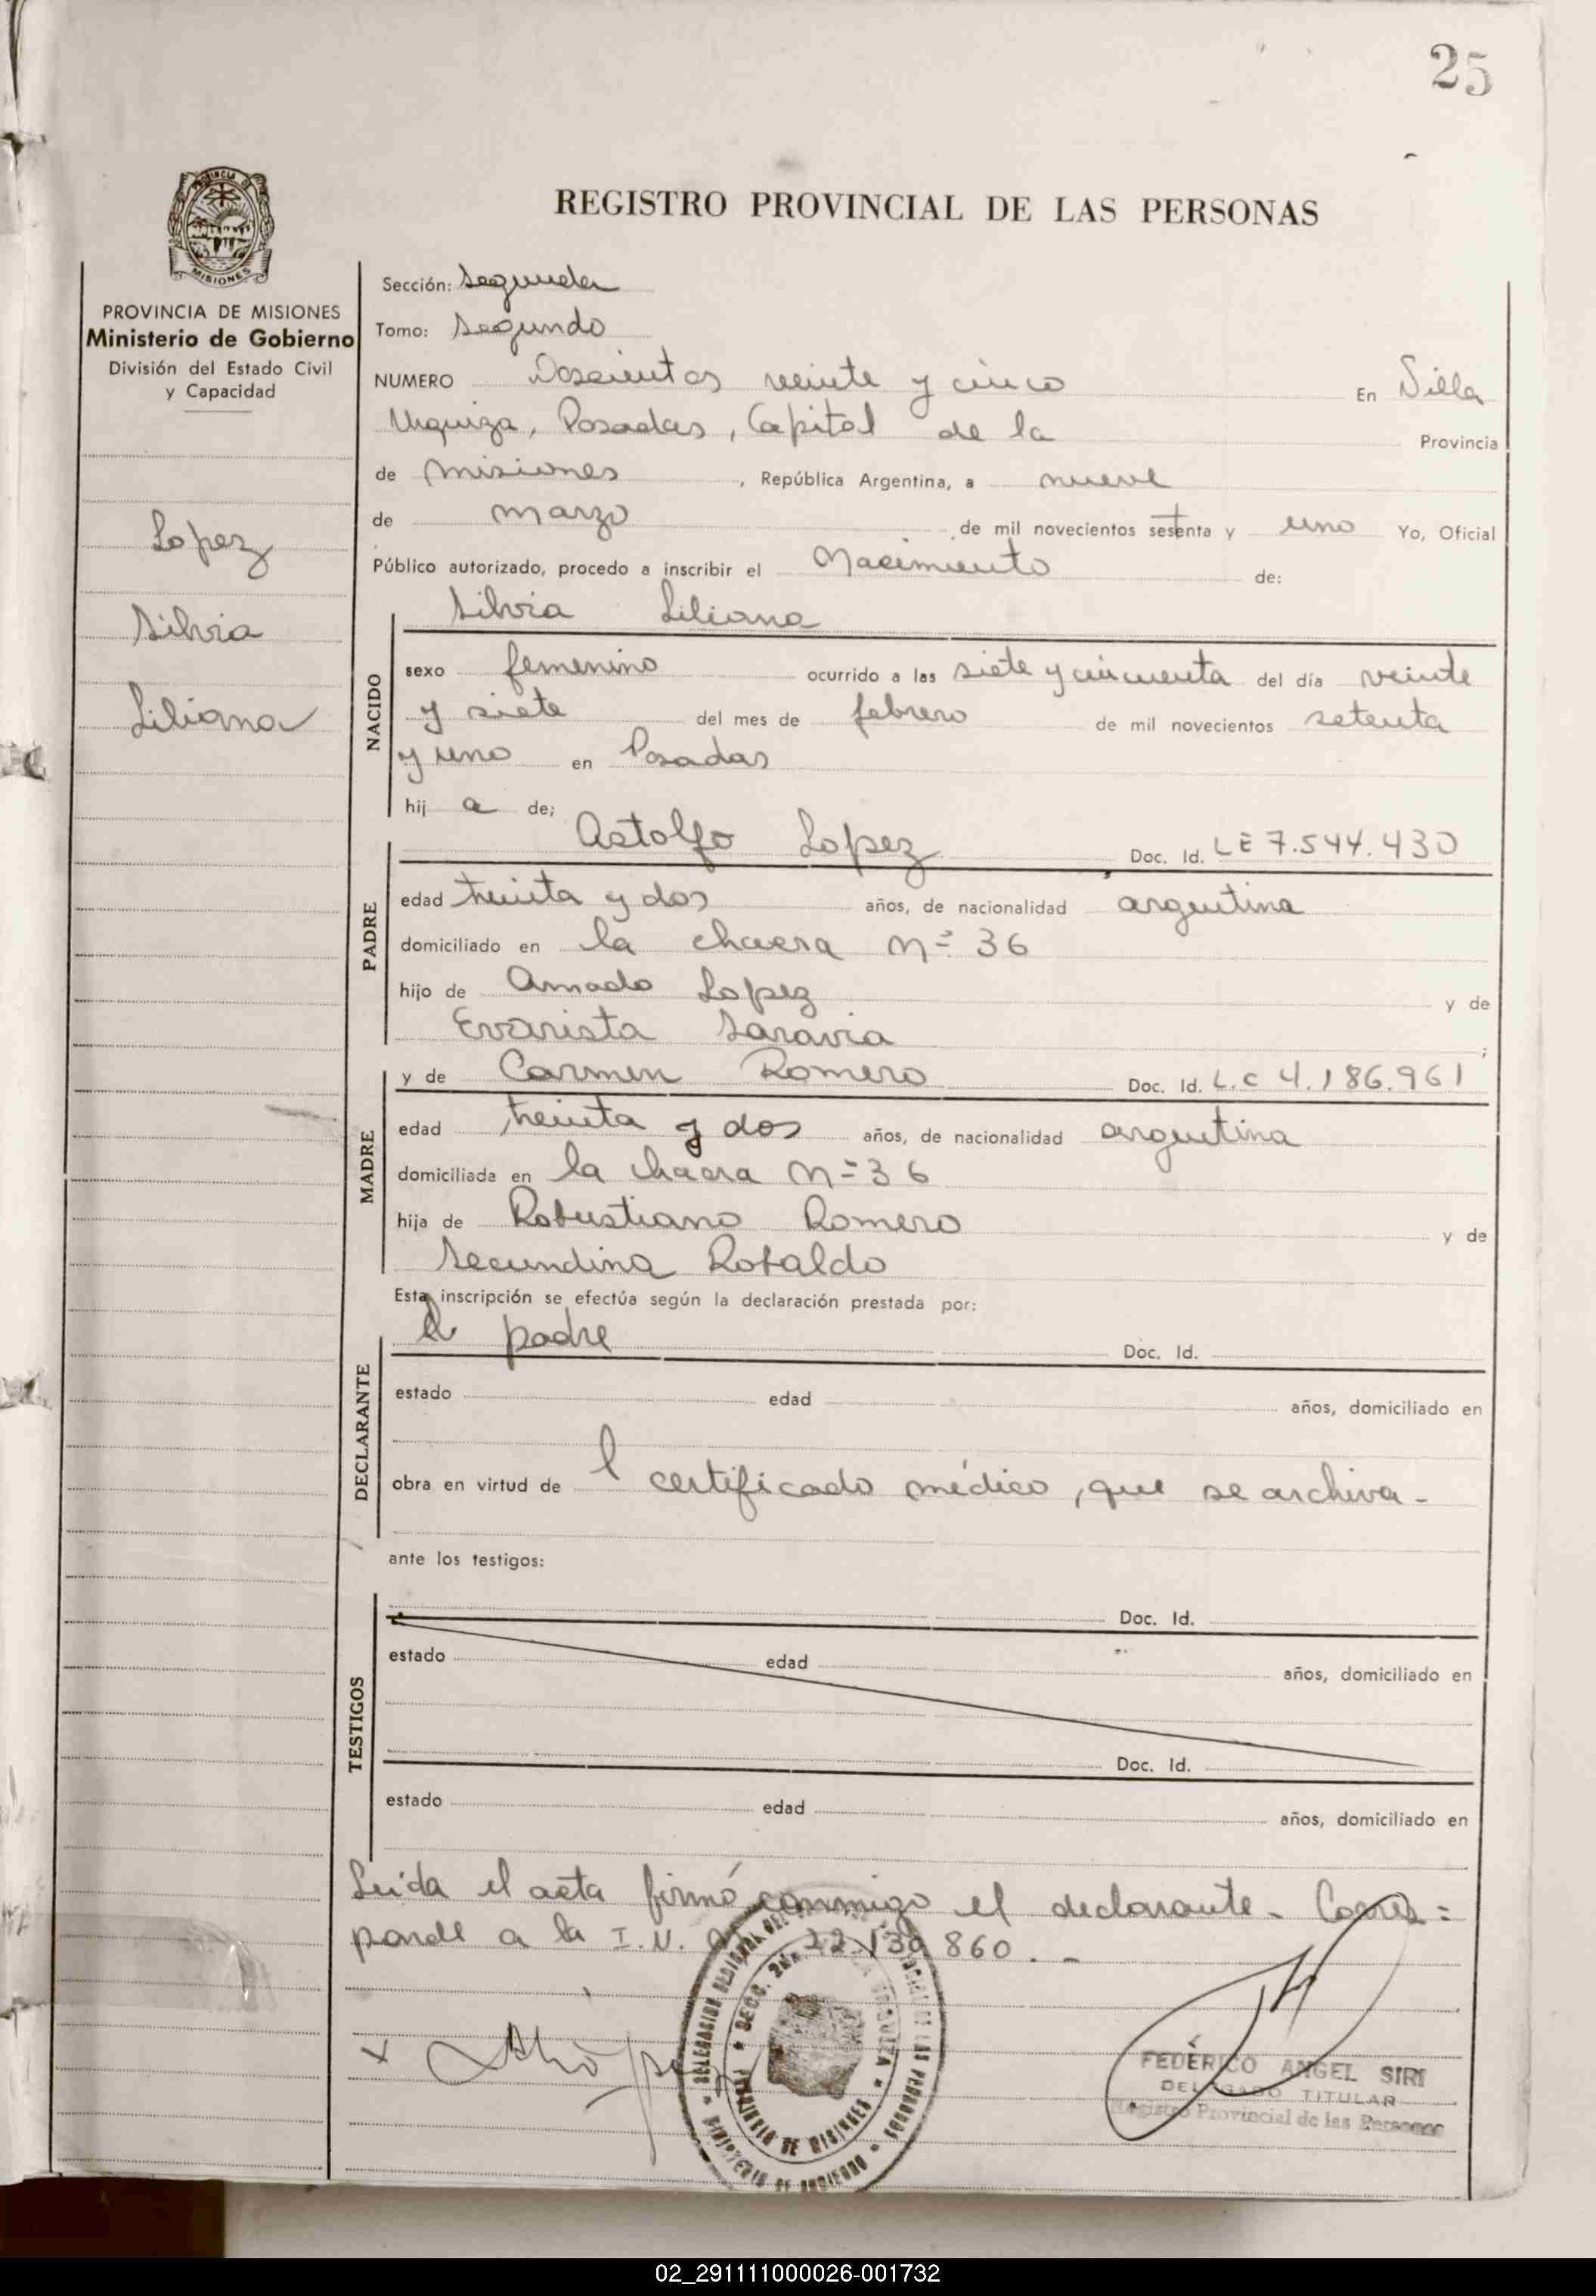 25
PROVINCIA DE MISIONES
REGISTRO PROVINCIAL DE LAS PERSONAS
PROVINCIA DE MISIONES
Ministerio de Gobierno
División del Estado Civil
y Capacidad
Lopez
Silvia
Liliana
Sección: Segunda
Tomo: Segundo
NUMERO Doscientos veinte y cinco En Villa
Urquiza, Posadas, Capital de la Provincia
de Misiones, República Argentina, a nueve
de marzo de mil novecientos setenta y uno Yo, Oficial
Público autorizado, procedo a inscribir el Nacimiento de:
Silvia Liliana
NACIDO
sexo femenino ocurrido a las siete y cincuenta del día veinte
y siete del mes de febrero de mil novecientos setenta
y uno en Posadas
hij a de;
Astolfo Lopez Doc. Id. LE 7.544.430
PADRE
edad treinta y dos años, de nacionalidad argentina
domiciliado en la chacra Nº 36
hijo de Amado Lopez y de
Evarista Saravia;
y de Carmen Romero Doc. Id. L.C 4.186.961
MADRE
edad treinta y dos años, de nacionalidad argentina
domiciliada en la chacra Nº 36
hija de Robustiano Romero y de
Secundina Robaldo
Esta inscripción se efectúa según la declaración prestada por:
el padre Doc. Id.
DECLARANTE
estado edad años, domiciliado en
obra en virtud de l certificado médico, que se archiva-
ante los testigos:
Doc. Id.
TESTIGOS
estado edad años, domiciliado en
Doc. Id.
estado edad años, domiciliado en
Leida el acta firmó conmigo el declarante- Corres=
ponde a la I.N. 22.130.860.-
x
SECC. 2da. VILLA URQUIZA
PROVINCIA DE MISIONES
MINISTERIO DE GOBIERNO
FEDERICO ANGEL SIRI
DELEGADO TITULAR
Registro Provincial de las Personas
02_291111000026-001732